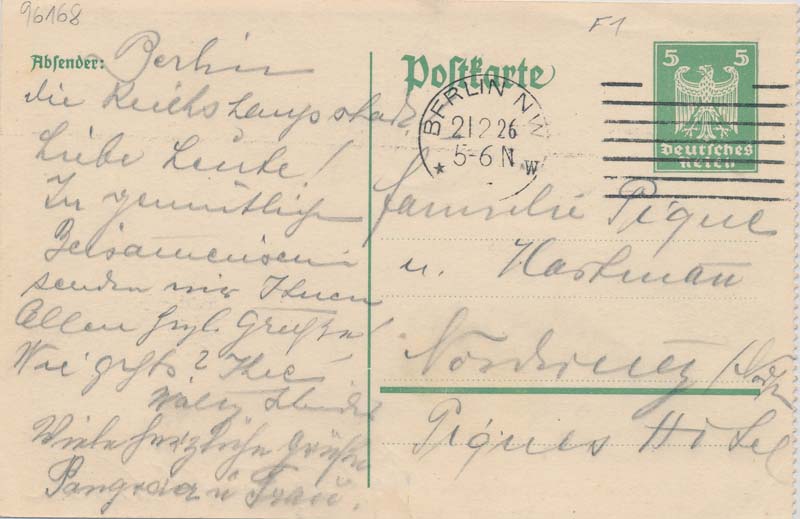 96168
F1
Absender: Berlin
die Reichshauptstadt
Liebe Leute!
In gemütlichem
Beisammensein
senden wir Ihnen
Allen herzl. Grüße!
Wie gehts? Ihre
Viele herzliche Grüße
u Frau.
Postkarte
BERLIN NW
21 2 26
5-6 N
* NW
5 5
Deutsches
Reich
Familie Pique
u. Hartman
Norderney / Nords
Piques Hotel